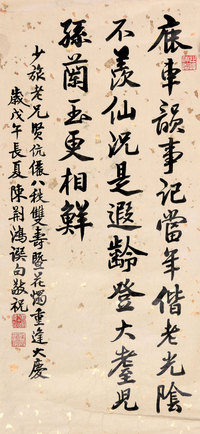 鹿車韻事記當年偕老光陰
不羨仙況是遐齡登大耋兒
孫蘭玉更相鮮
少旅老兄賢伉儷八秩雙壽暨花燭重逢大慶
歲戊午長夏陳荊鴻譔句敬祝